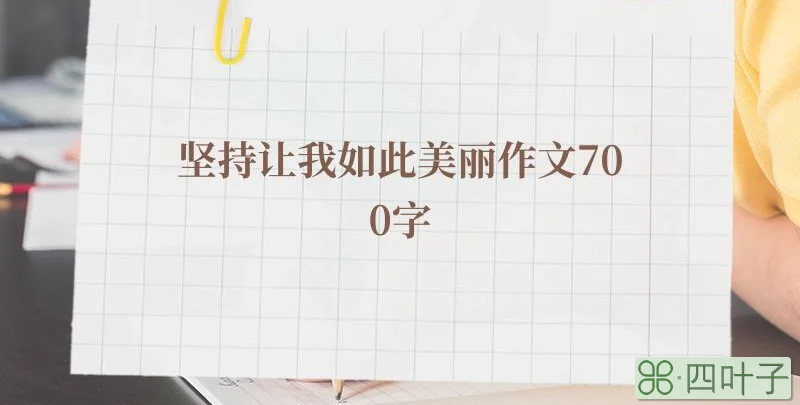 坚持让我如此美丽作文70
0字
四叶子